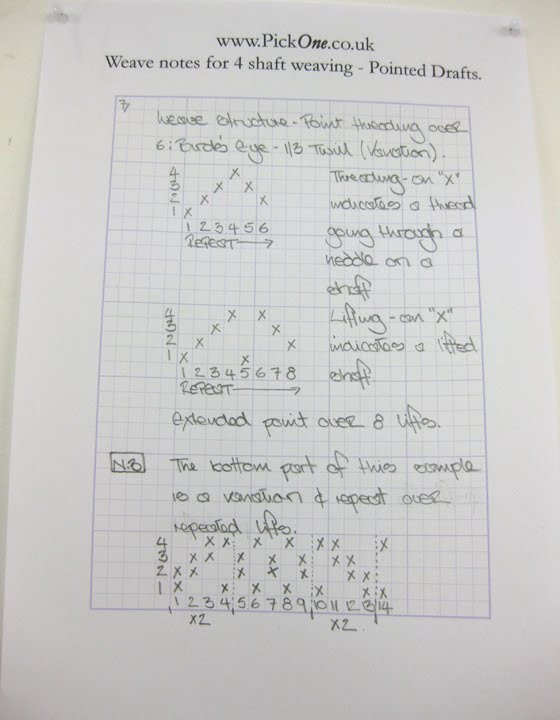 www.PickOne.co.uk
Weave notes for 4 shaft weaving - Pointed Drafts.
7
Weave structure - Point threading over
6: Bird's Eye - 1/3 Twill (Variation).
4 X
3 X X
2 X X
1 X
1 2 3 4 5 6
REPEAT
Threading - an "X"
indicates a thread
going through a
heddle on a
shaft
4 X X
3 X X
2 X X
1 X X
1 2 3 4 5 6 7 8
REPEAT
Lifting - an "X"
indicates a lifted
shaft
extended point over 8 lifts.
N.B
The bottom part of this example
is a variation & repeat over
repeated lifts.
4 X X X X X X X
3 X X X X X X X
2 X X X X X X X
1 X X X X X X X
1 2 3 4 5 6 7 8 9 10 11 12 13 14
X2 X2